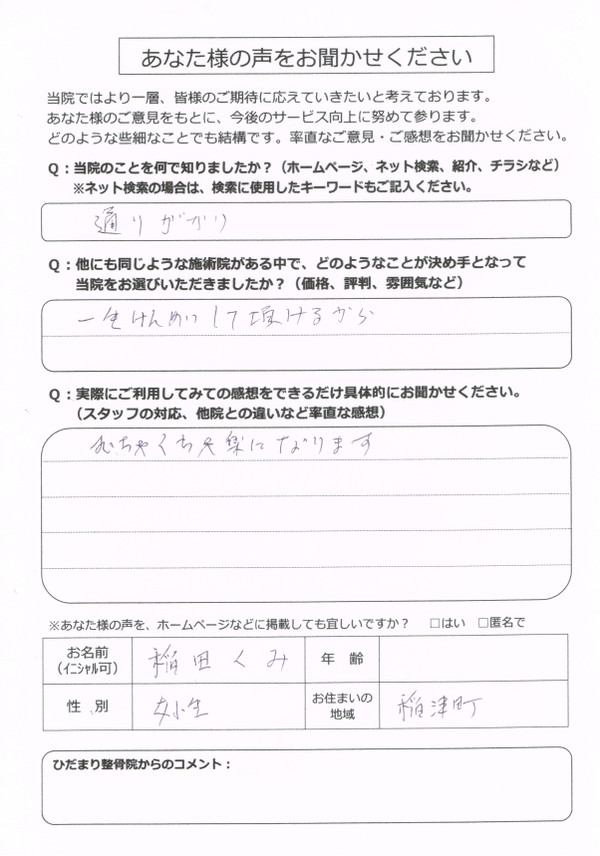 あなた様の声をお聞かせください
当院ではより一層、皆様のご期待に応えていきたいと考えております。
あなた様のご意見をもとに、今後のサービス向上に努めて参ります。
どのような些細なことでも結構です。率直なご意見・ご感想をお聞かせください。
Q：当院のことを何で知りましたか？（ホームページ、ネット検索、紹介、チラシなど）
※ネット検索の場合は、検索に使用したキーワードもご記入ください。
通りがかり
Q：他にも同じような施術院がある中で、どのようなことが決め手となって
当院をお選びいただきましたか？（価格、評判、雰囲気など）
一生けんめいして頂けるから
Q：実際にご利用してみての感想をできるだけ具体的にお聞かせください。
（スタッフの対応、他院との違いなど率直な感想）
むちゃくちゃ楽になります
※あなた様の声を、ホームページなどに掲載しても宜しいですか？ □はい □匿名で
お名前
（イニシャル可）
稲田くみ
年 齢
性 別
女性
お住まいの
地域
稲津町
ひだまり整骨院からのコメント：